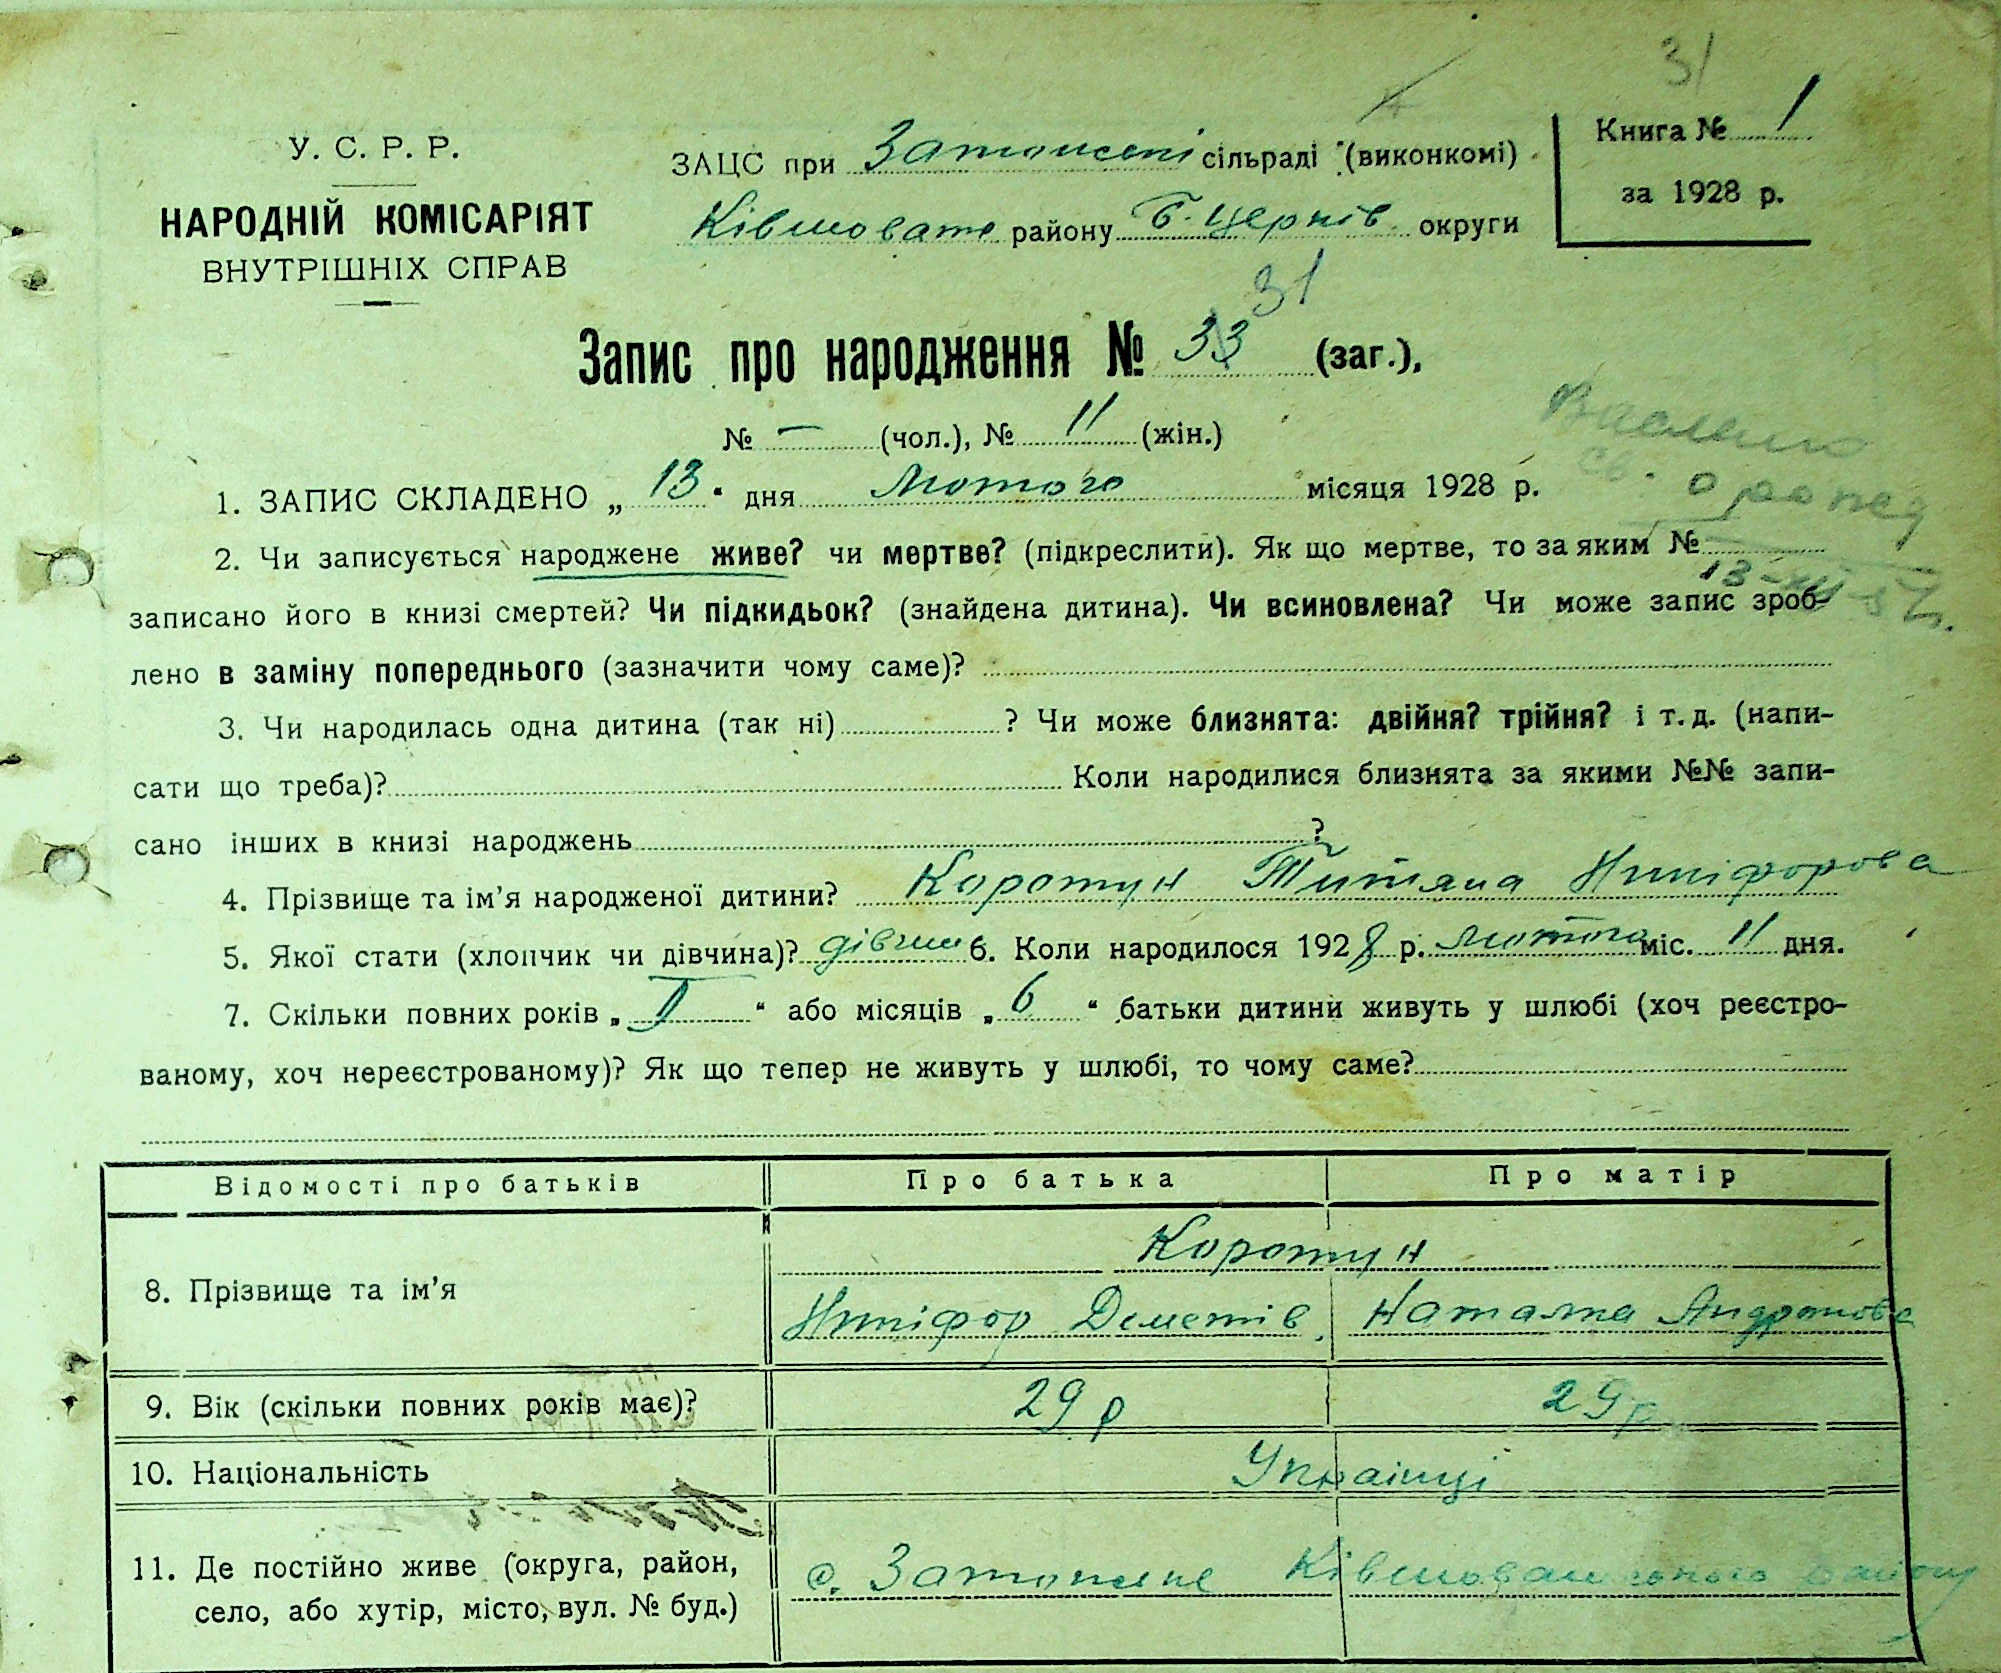 31
У. С. Р. Р.
НАРОДНІЙ КОМІСАРІЯТ
ВНУТРІШНІХ СПРАВ
ЗАЦС при сільраді (виконкомі)
району Б. Церків. округи
Книга № 1
за 1928 р.
31
Запис про народження № 33 (заг.),
№ — (чол.), № 11 (жін.)
1. ЗАПИС СКЛАДЕНО „ 13 “ дня Лютого місяця 1928 р.
2. Чи записується народжене живе? чи мертве? (підкреслити). Як що мертве, то за яким №
записано його в книзі смертей? Чи підкидьок? (знайдена дитина). Чи всиновлена? Чи може запис зроб-
лено в заміну попереднього (зазначити чому саме)?
3. Чи народилась одна дитина (так ні) ? Чи може близнята: двійня? трійня? і т. д. (напи-
сати що треба)? Коли народилися близнята за якими №№ запи-
сано інших в книзі народжень ?
4. Прізвище та ім’я народженої дитини? Коротун Титяна Никіфорова
5. Якої стати (хлопчик чи дівчина)? 6. Коли народилося 1928 р. Лютого міс. 11 дня.
7. Скільки повних років „ “ або місяців „ 6 “ батьки дитини живуть у шлюбі (хоч реєстро-
ваному, хоч нереєстрованому)? Як що тепер не живуть у шлюбі, то чому саме?
Відомості про батьків Про батька Про матір
Коротун
8. Прізвище та ім’я Никіфор Наталка
9. Вік (скільки повних років має)? 29 р 29 р
10. Національність Українці
11. Де постійно живе (округа, район,
село, або хутір, місто, вул. № буд.)
с. району